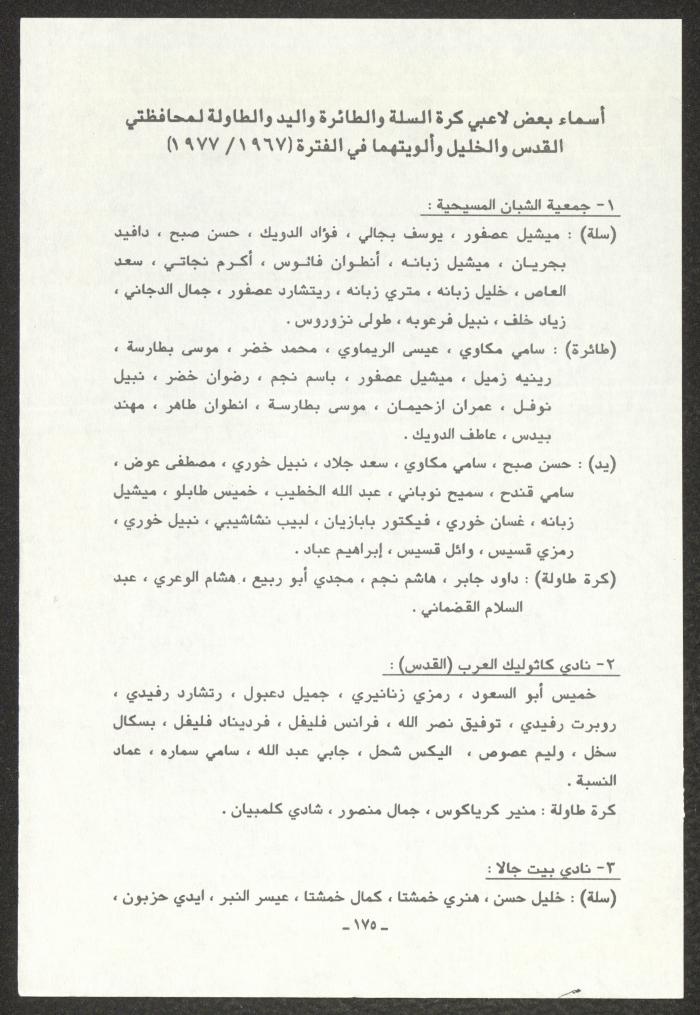 أسماء بعض لاعبي كرة السلة والطائرة واليد والطاولة لمحافظتي
القدس والخليل وألويتهما في الفترة (١٩٦٧/ ١٩٧٧)
١- جمعية الشبان المسيحية :
(سلة) : ميشيل عصفور ، يوسف بجالي ، فؤاد الدويك ، حسن صبح ، دافيد
بجريان ، ميشيل زبانه ، أنطوان فانوس ، أكرم نجاتي ، سعد
العاص ، خليل زبانه ، متري زبانه ، ريتشارد عصفور ، جمال الدجاني ،
زياد خلف ، نبيل فرعوبه ، طولى نزوروس .
(طائرة) : سامي مكاوي ، عيسى الريماوي ، محمد خضر ، موسى بطارسة ،
رينيه زميل ، ميشيل عصفور ، باسم نجم ، رضوان خضر ، نبيل
نوفل ، عمران ازحيمان ، موسى بطارسة ، انطوان طاهر ، مهند
بيدس ، عاطف الدويك .
(يد) : حسن صبح ، سامي مكاوي ، سعد جلاد ، نبيل خوري ، مصطفى عوض ،
سامي قندح ، سميح نوباني ، عبد الله الخطيب ، خميس طابلو ، ميشيل
زبانه ، غسان خوري ، فيكتور بابازيان ، لبيب نشاشيبي ، نبيل خوري ،
رمزي قسيس ، وائل قسيس ، إبراهيم عباد .
(كرة طاولة) : داود جابر ، هاشم نجم ، مجدي أبو ربيع ، هشام الوعري ، عبد
السلام القضماني .
٢- نادي كاثوليك العرب (القدس) :
خميس أبو السعود ، رمزي زنانيري ، جميل دعبول ، رتشارد رفيدي ،
روبرت رفيدي ، توفيق نصر الله ، فرانس فليفل ، فرديناد فليفل ، بسكال
سخل ، وليم عصوص ، اليكس شحل ، جابي عبد الله ، سامي سماره ، عماد
النسبة .
كرة طاولة : منير كرياكوس ، جمال منصور ، شادي كلمبيان .
٣- نادي بيت جالا :
(سلة) : خليل حسن ، هنري خمشتا ، كمال خمشتا ، عيسر النبر ، ايدي حزبون ،
ـ ١٧٥ ـ